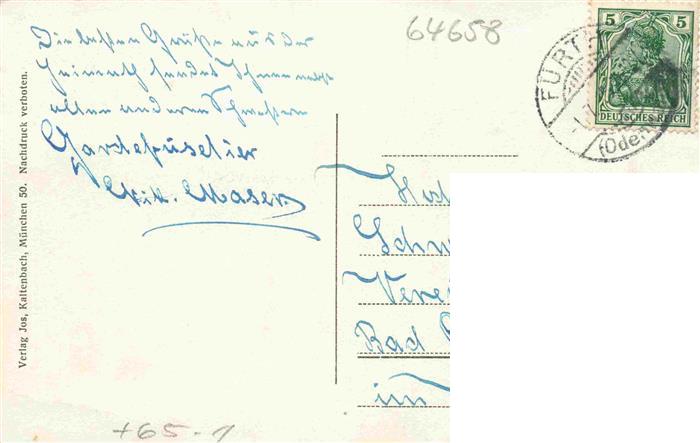 64658
Die besten Grüße aus der
Heimath sendet Ihnen nebst
allen anderen Schwestern
Gardefüselier
Nik. Maser.
Schw
Verei
Bad
im
Verlag Jos, Kaltenbach, München 50. Nachdruck verboten.
5 5
DEUTSCHES REICH
FÜRTH
(Oden
+65.-1